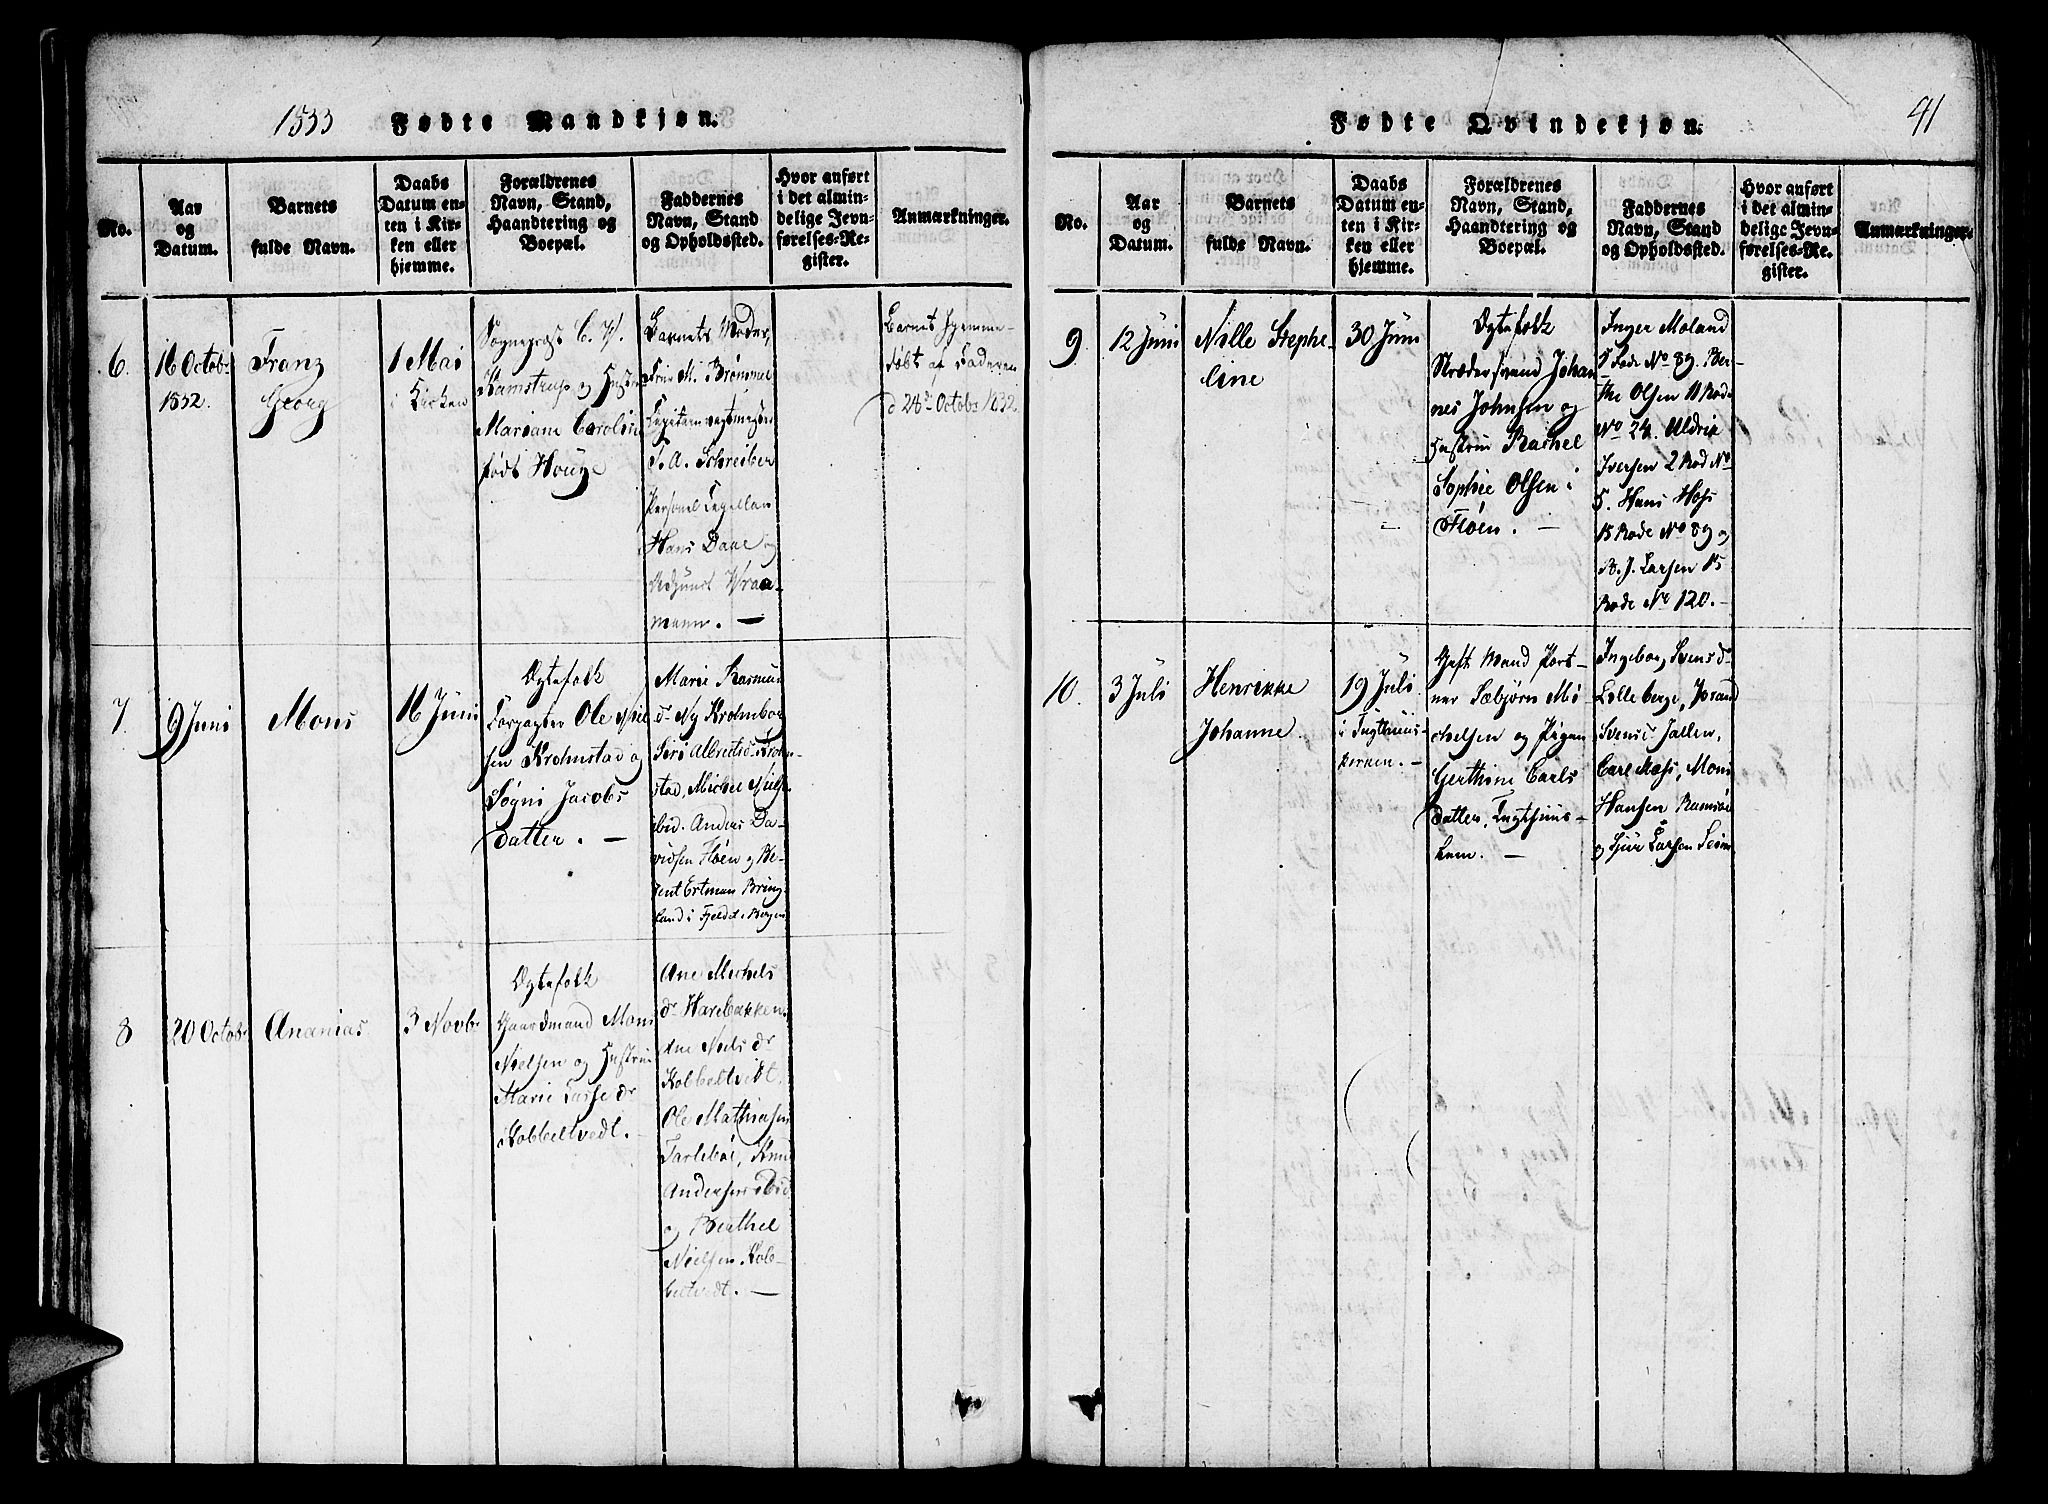 1833 Fødte Mandkjøn.
No.
Aar
og
Datum.
Barnets
fulde Navn.
Daabs
Datum en-
ten i Kir-
ken eller
hjemme.
Forældrenes
Navn, Stand,
Haandtering og
Boepæl.
Faddernes
Navn, Stand
og Opholdssted.
Hvor anført
i det almin-
delige Jevn-
førelses-Re-
gister.
Anmærkninger.
6.
16 Octobr
1832.
Franz
Georg
1 Mai
i Kirken
Sognepræst C. H.
Kamstrup og Hustru
Mariane Carolin
født Houge
Barnets Moder,
Frue M. Brømmel
T. A. Schreiber
Personel Capellan
Hans Daae og
Adjunct Wraa-
mann. —
Barnet hjemme-
døbt af Faderen
d 28de Octobr 1832
7.
9 Juni
Mons
16 Juni
Ægtefolk
Forpagter Ole Niel
sen Kronstad og
Søgni Jacobs
datter. —
Marie Rasmus
dr Ny Krohnborg
Siri Albretsdr Krohn-
stad, Michel Niels.
ibid. Anders Da-
vidsen Fløen og Be-
rent Ertman Bring-
land i Fjeldet i Bergen
8
20 Octobr
Ananias.
3 Novbr
Ægtefolk
Gaardmand Mons
Nielsen og Hustru
Marie Lasse dr
Kobbeltvedt. —
Ane Michels
dr Harebakken.
Ane Niels dr
Kobbeltvedt.
Ole Mathiasen
Tarlebøe, Knud
Andersen ibid
og Berthel
Nielsen Kob-
beltvedt. —
Fødte Qvindekjøn.
41
No.
Aar
og
Datum.
Barnets
fulde Navn.
Daabs
Datum en-
ten i Kir-
ken eller
hjemme.
Forældrenes
Navn, Stand,
Haandtering og
Boepæl.
Faddernes
Navn, Stand
og Opholdsted.
Hvor anført
i det almin-
delige Jevn-
førelses-Re-
gister.
Anmærkninger.
9.
12 Juni
Nille Stephe-
line
30 Juni
Ægtefolk
Skrædersvend Johan
nes Johnsen og
Hustru Rachel
Sophie Olsen i
Fløen. —
Inger Moland
5 Rode No 89. Ber-
the Olsen 11 Rode
No 24. Uldrik
Iversen 2 Rod No
5. Hans Hess
15 Rode No 89 og
B. J. Larsen 15
Rode No 120. —
10.
3 Juli
Henrikke
Johanne.
19 Juli
i Tugthuus-
kirken. —
Gift Mand Port-
ner Sæbjørn Mi-
chelsen og Pigen
Gerthine Carls
datter, Tugthuus-
lem. —
Ingebor Svensdr
Lilleberge, Jorand
Svensdr Jallen,
Carl Moss, Mons
Hansen Ramsøe
og Sjur Larsen Seim